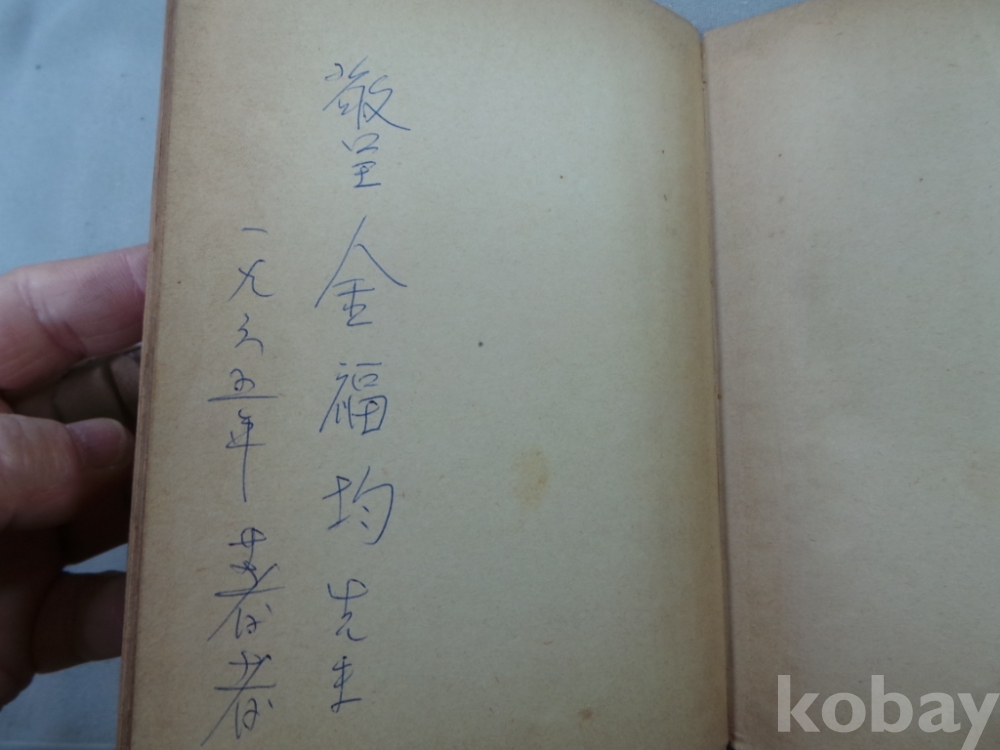 敬呈 金福均 先生
一九六五年 著者
kobay